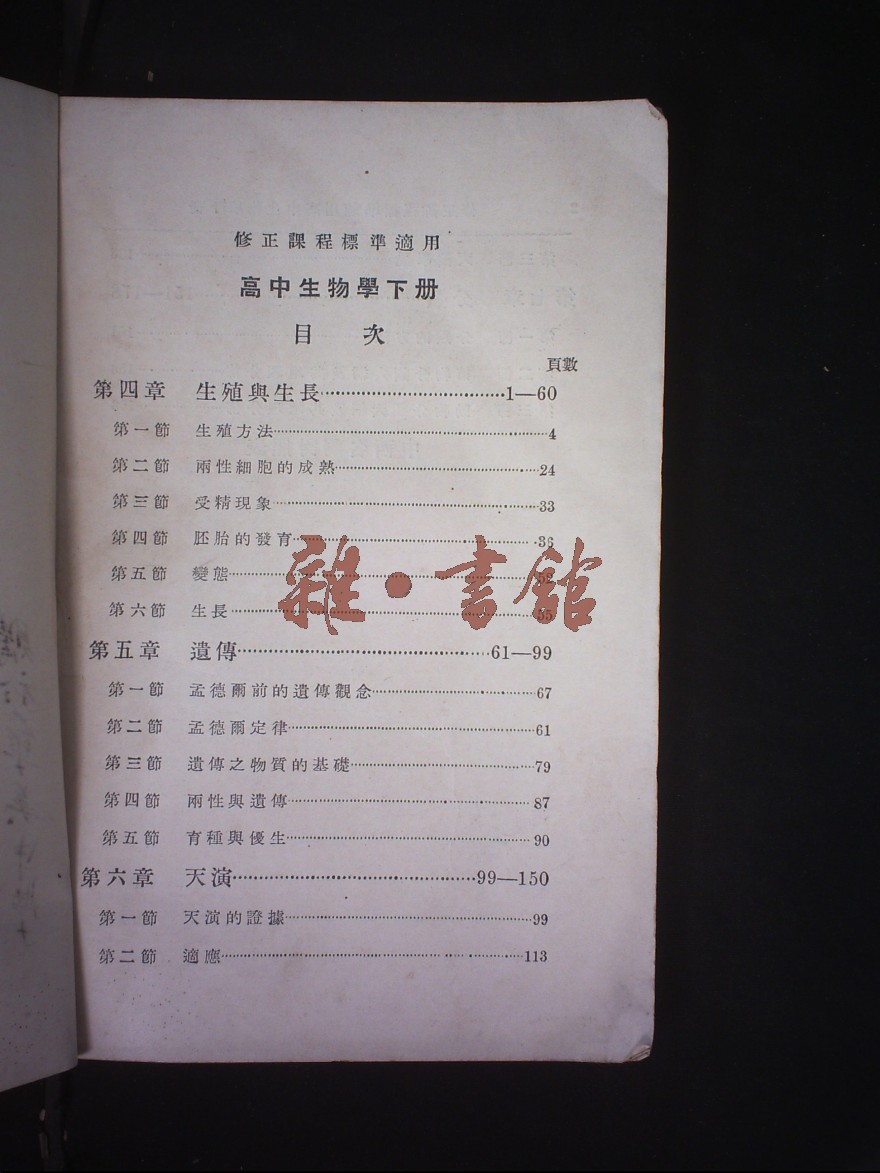 修正課程標準適用
高中生物學下册
目 次
頁數
第四章 生殖與生長……………………………1—60
第一節 生殖方法……………………………4
第二節 兩性細胞的成熟……………………………24
第三節 受精現象……………………………33
第四節 胚胎的發育……………………………36
第五節 變態……………………………52
第六節 生長……………………………55
第五章 遺傳……………………………61—99
第一節 孟德爾前的遺傳觀念……………………………67
第二節 孟德爾定律……………………………61
第三節 遺傳之物質的基礎……………………………79
第四節 兩性與遺傳……………………………87
第五節 育種與優生……………………………90
第六章 天演……………………………99—150
第一節 天演的證據……………………………99
第二節 適應……………………………113
雜·書館